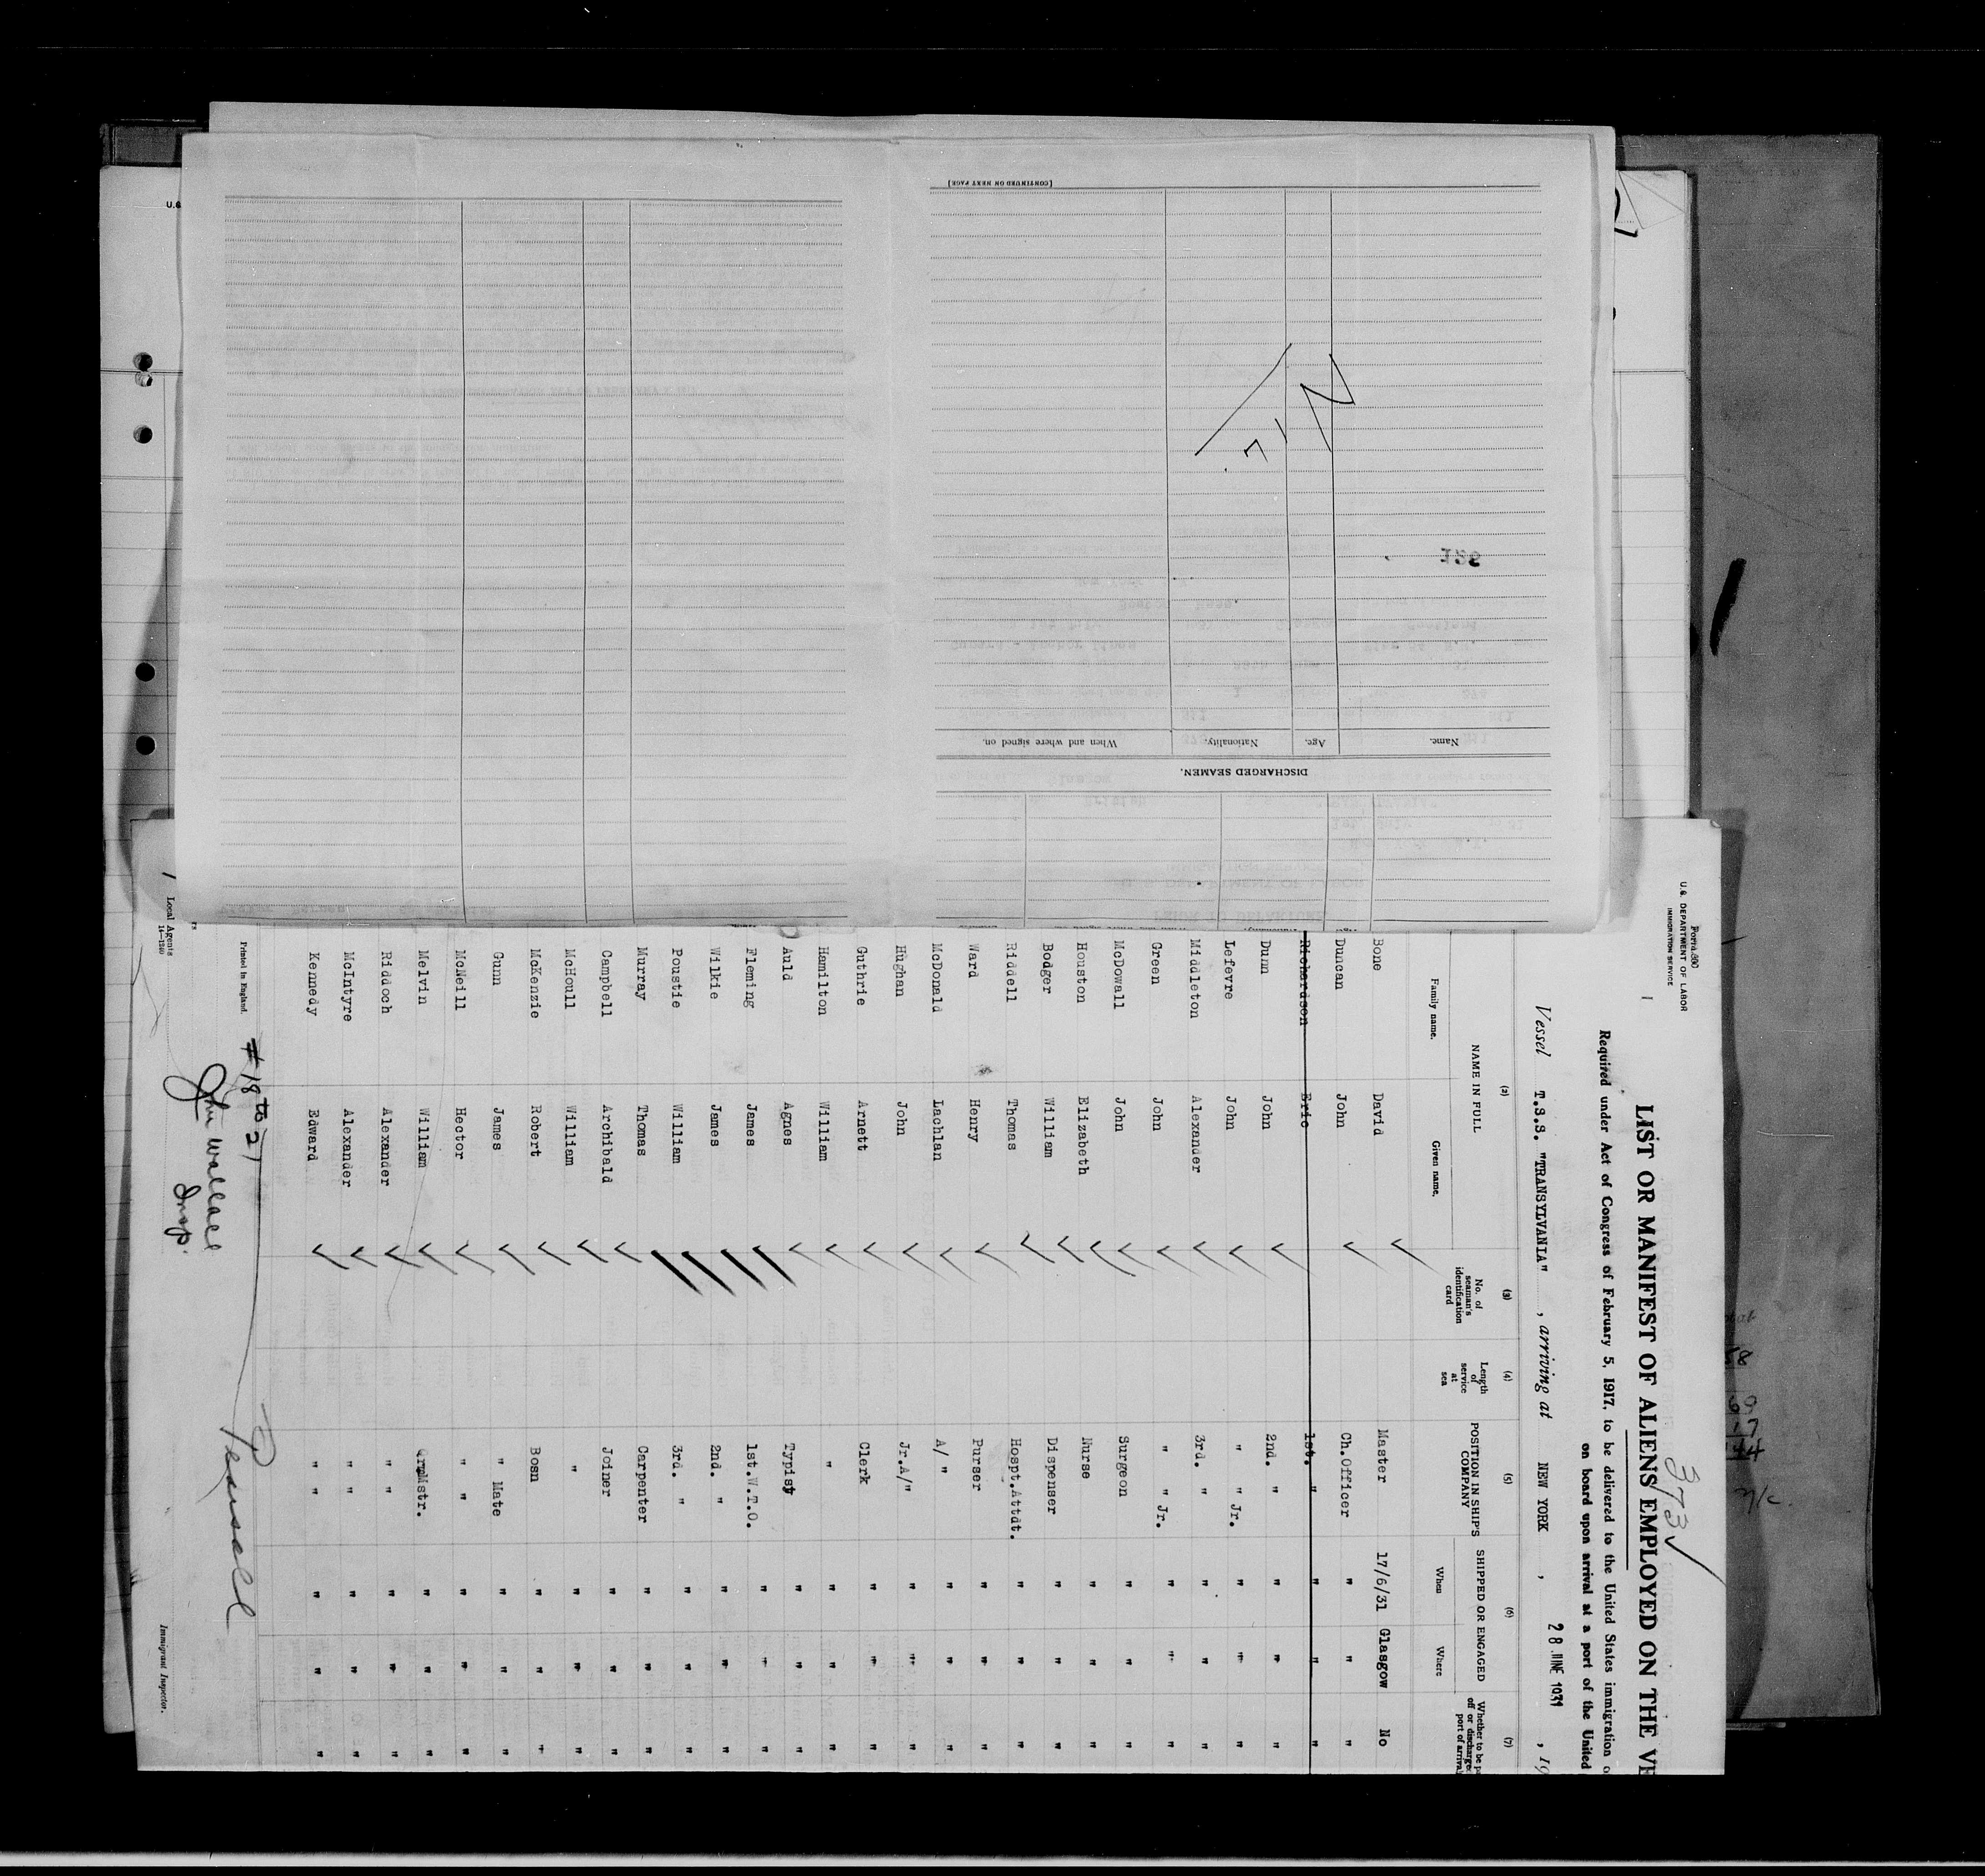 [CONTINUED ON NEXT PAGE]
125
Name. Age. Nationality. When and where signed on.
DISCHARGED SEAMEN.
U.S. DEPARTMENT OF LABOR
IMMIGRATION SERVICE
373
LIST OR MANIFEST OF ALIENS EMPLOYED ON THE VE
Required under Act of Congress of February 5, 1917, to be delivered to the United States immigration o
on board upon arrival at a port of the United
Vessel T.S.S. "TRANSYLVANIA" , arriving at NEW YORK , 28 JUNE 1931 , 19
(2) (3) (4) (5) (6) (7)
NAME IN FULL No. of seaman's identification card Length of service at sea POSITION IN SHIP'S COMPANY SHIPPED OR ENGAGED Whether to be pa off or discharged port of arrival
Family name. Given name. When Where
Bone David Master 17/6/31 Glasgow No
Duncan John Ch.Officer " " "
Richardson Eric 1st. " " " "
Dunn John 2nd. " " " "
Lefevre John " " Jr. " " "
Middleton Alexander 3rd. " " " "
Green John " " Jr. " " "
McDowall John Surgeon " " "
Houston Elizabeth Nurse " " "
Bodger William Dispenser " " "
Riddell Thomas Hospt.Attdt. " " "
Ward Henry Purser " " "
McDonald Lachlan A/ " " " "
Hughan John Jr.A/" " " "
Guthrie Arnett Clerk " " "
Hamilton William " " " "
Auld Agnes Typist " " "
Fleming James 1st.W.T.O. " " "
Wilkie James 2nd. " " " "
Poustie William 3rd. " " " "
Murray Thomas Carpenter " " "
Campbell Archibald Joiner " " "
McHoull William " " " "
McKenzie Robert Bosn " " "
Gunn James " Mate " " "
McNeill Hector " " " " "
Melvin William QrMstr. " " "
Riddoch Alexander " " " " "
McIntyre Alexander " " " " "
Kennedy Edward " " " " "
Printed in England.
# 18 to 21
John Wallace
Insp.
Local Agents
14—1240
Immigrant Inspector.